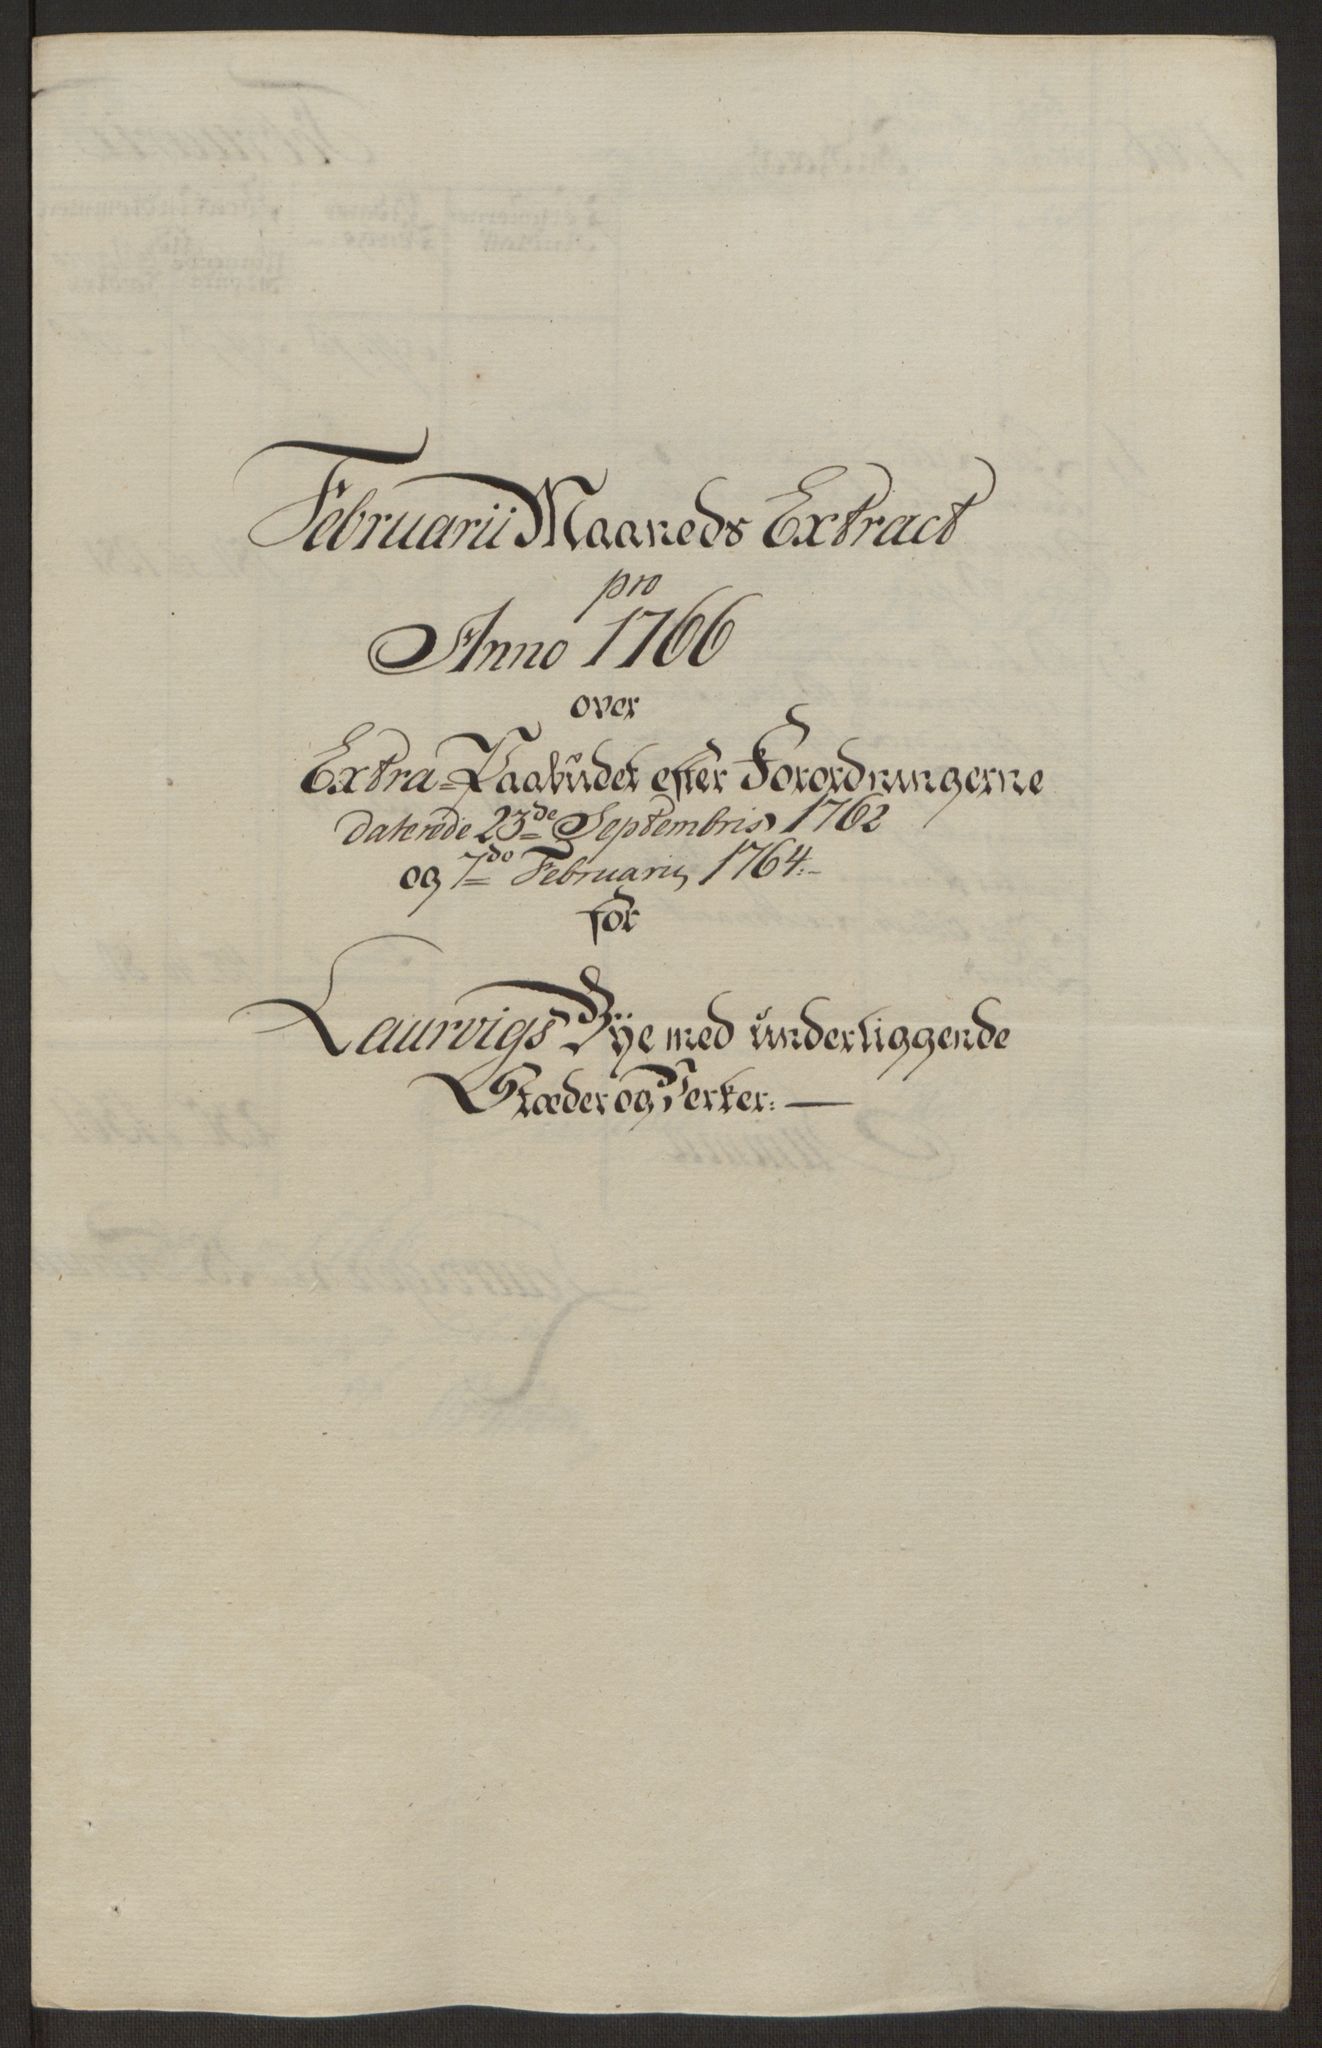 Februarii Maaneds Extract
pro
Anno 1766
over
Extra-Paabudet efter Forordningerne
daterede 23de Septembris 1762
og 7do Februarii 1764.-
for
Laurvigs Bÿe med underliggende
Stæder og Verker. —